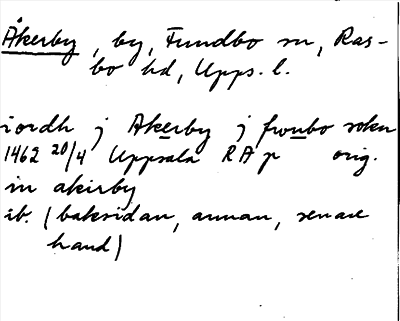 Åkerby, by, Fundbo sn, Ras-
bo hd, Upps. l.
iordh j Akerby j fwnbo sokn
1462 20/4 Uppsala RA p orig.
in akirby
ib. (baksidan, annan, senare
hand)